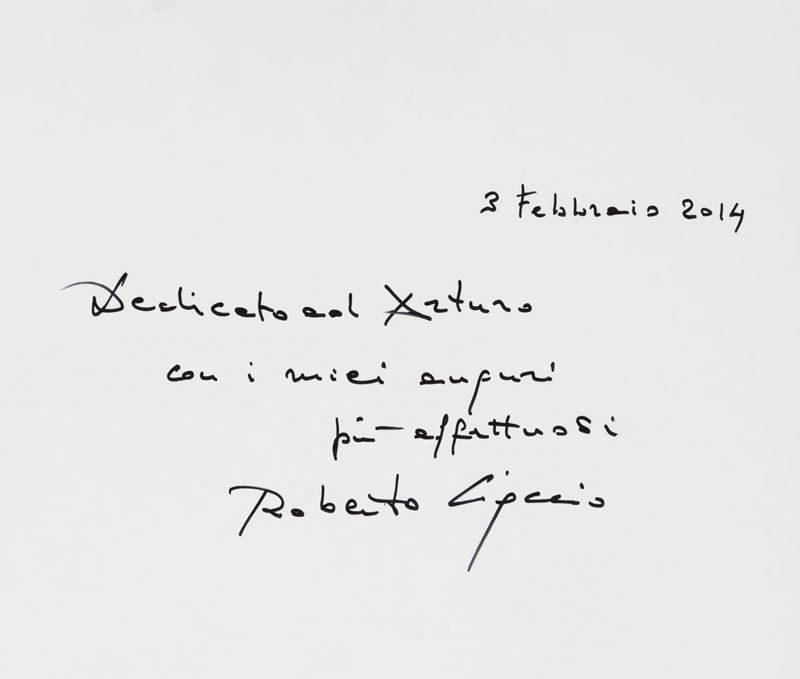 3 Febbraio 2014
Dedicato ad Arturo
con i miei auguri
più affettuosi
Roberto